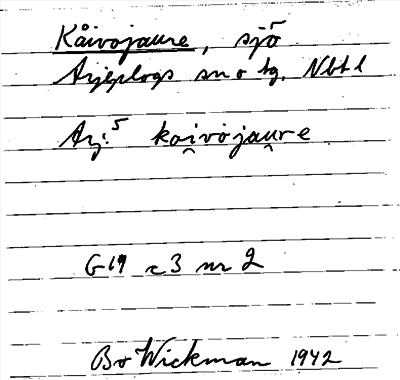 Kåivojaure, sjö
Arjeplogs sn o tg. Nbtl
Arj:5 kai̯vojau̯re
G19 c3 nr 2
Bo Wickman 1942